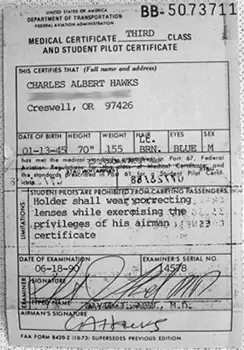 UNITED STATES OF AMERICA
DEPARTMENT OF TRANSPORTATION
FEDERAL AVIATION ADMINISTRATION
BB-5073711
MEDICAL CERTIFICATE THIRD CLASS
AND STUDENT PILOT CERTIFICATE
THIS CERTIFIES THAT (Full name and address)
CHARLES ALBERT HAWKS
Creswell, OR 97426
DATE OF BIRTH HEIGHT WEIGHT HAIR EYES SEX
01-13-45 70" 155 Lt. BRN. BLUE M
has met the medical standards in Part 67, Federal
Aviation Regulations
STUDENT PILOTS ARE PROHIBITED FROM CARRYING PASSENGERS
LIMITATIONS
Holder shall wear correcting
lenses while exercising the
privileges of his airman
certificate
DATE OF EXAMINATION EXAMINER'S SERIAL NO.
06-18-90 14578
EXAMINER
SIGNATURE
TYPED NAME M.D.
AIRMAN'S SIGNATURE
CA Hawks
FAA FORM 8420-2 (10-72) SUPERSEDES PREVIOUS EDITION